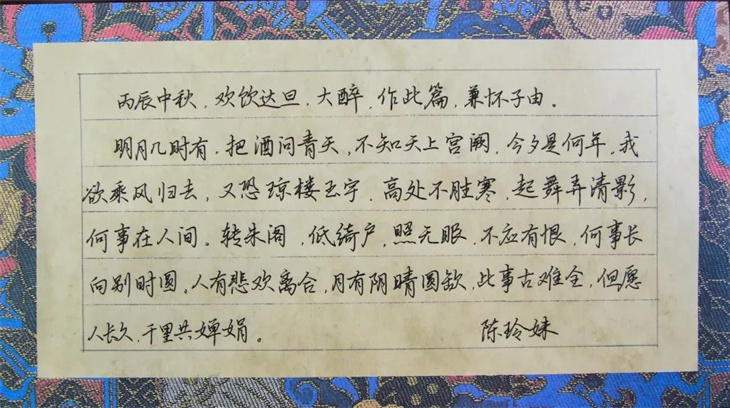 丙辰中秋，欢饮达旦，大醉，作此篇，兼怀子由。
明月几时有，把酒问青天，不知天上宫阙，今夕是何年，我
欲乘风归去，又恐琼楼玉宇，高处不胜寒，起舞弄清影，
何事在人间。转朱阁，低绮户，照无眠，不应有恨，何事长
向别时圆。人有悲欢离合，月有阴晴圆缺，此事古难全，但愿
人长久，千里共婵娟。
陈玲妹